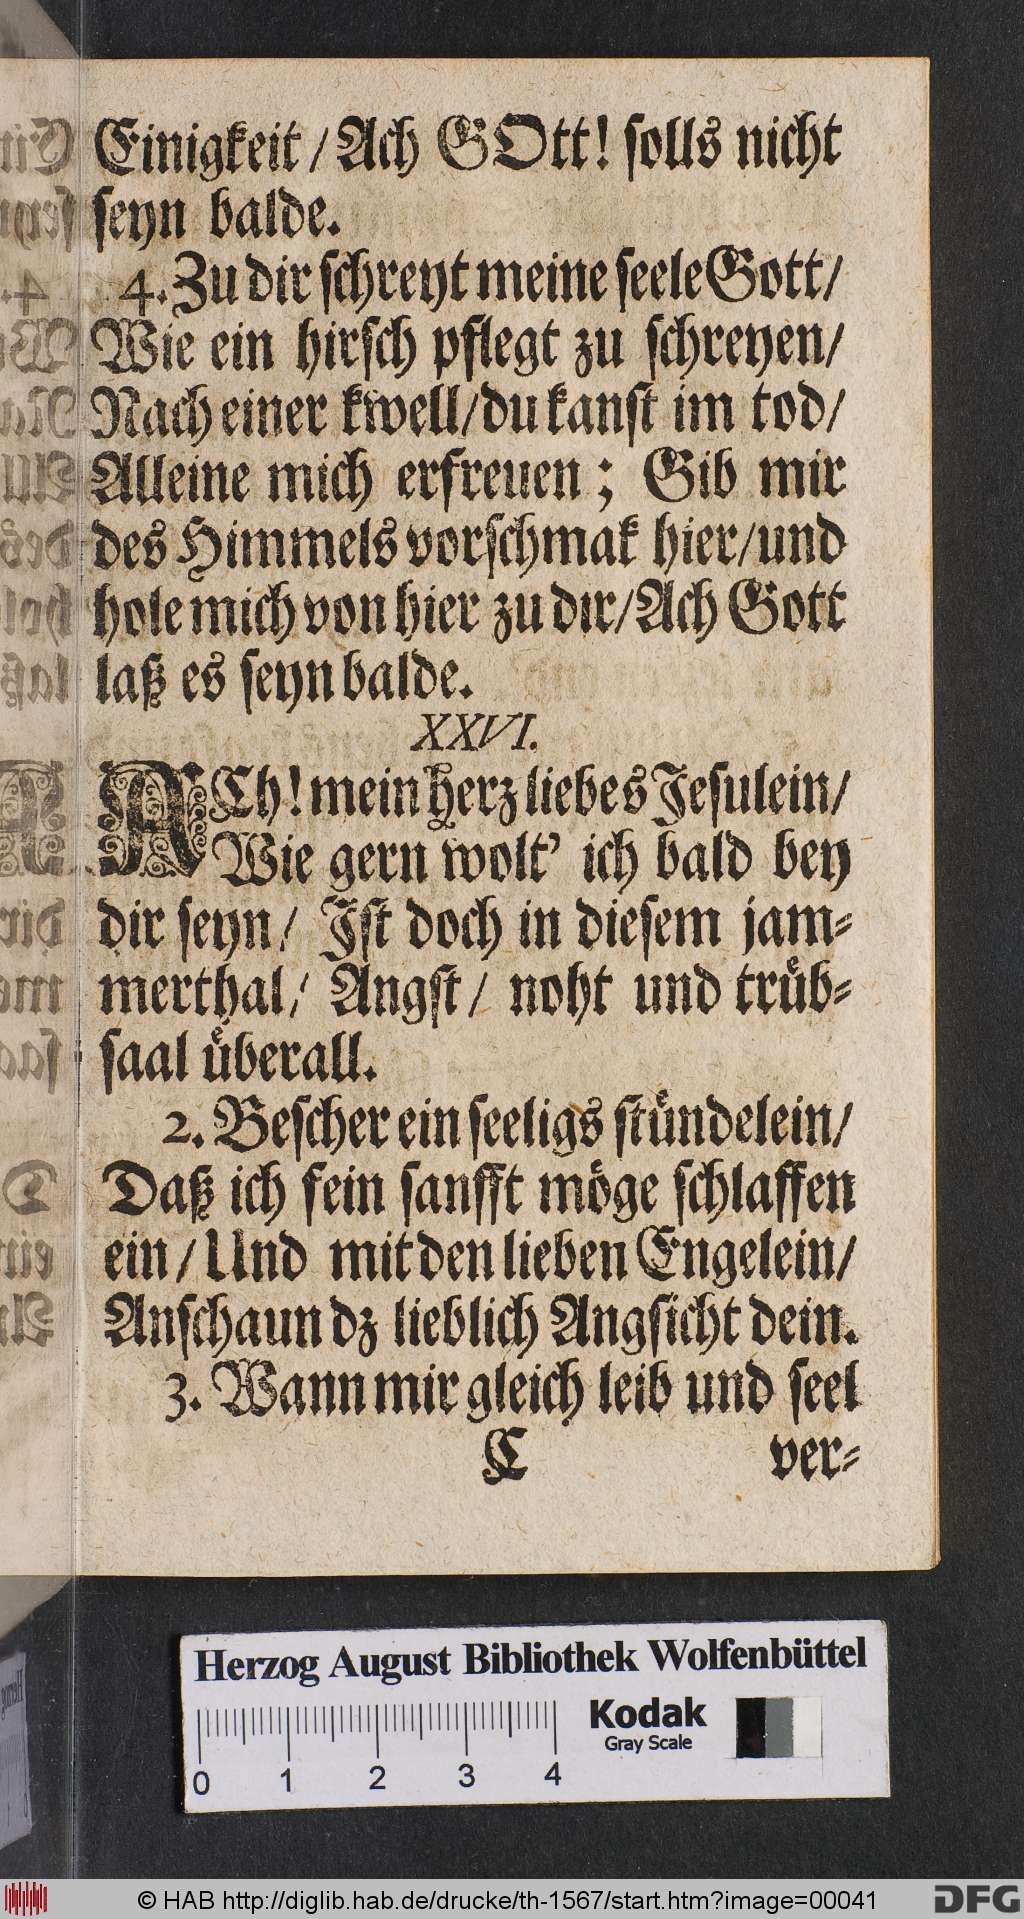 Einigkeit / Ach GOtt! solls nicht
seyn balde.
4. Zu dir schreyt meine seele Gott /
Wie ein hirsch pflegt zu schreyen /
Nach einer kwell / du kanst im tod /
Alleine mich erfreuen ; Gib mir
des Himmels vorschmak hier / und
hole mich von hier zu dir / Ach Gott
laß es seyn balde.
XXVI.
ACh! mein herz liebes Jesulein /
Wie gern wolt' ich bald bey
dir seyn / Ist doch in diesem jam-
merthal / Angst / noht und truͤb-
saal uͤberall.
2. Bescher ein seeligs stuͤndelein /
Daß ich fein sanfft moͤge schlaffen
ein / Und mit den lieben Engelein /
Anschaun dz lieblich Angsicht dein.
3. Wann mir gleich leib und seel
C ver-
Herzog August Bibliothek Wolfenbüttel
Kodak
Gray Scale
0 1 2 3 4
© HAB http://diglib.hab.de/drucke/th-1567/start.htm?image=00041
DFG